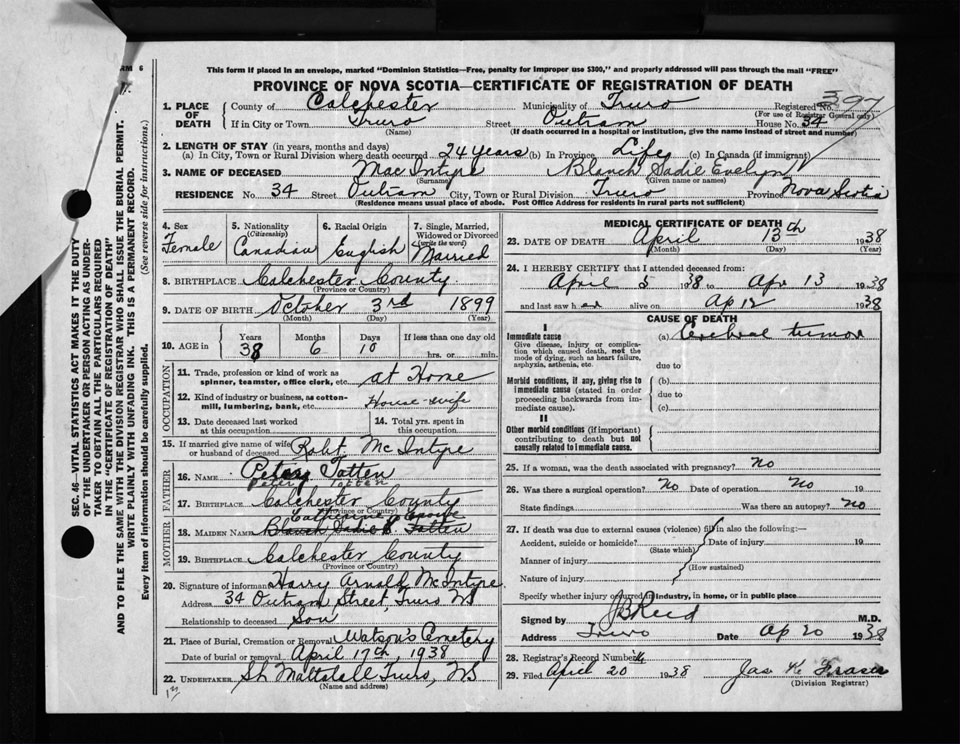 RM 6
This form if placed in an envelope, marked "Dominion Statistics—Free, penalty for improper use $300," and properly addressed will pass through the mail "FREE"
PROVINCE OF NOVA SCOTIA—CERTIFICATE OF REGISTRATION OF DEATH
1. PLACE OF DEATH County of Colchester Municipality of Truro Registered No. 397
(For use of Registrar General only)
If in City or Town Truro Street Outram House No. 34
(Name) (If death occurred in a hospital or institution, give the name instead of street and number)
2. LENGTH OF STAY (in years, months and days)
(a) In City, Town or Rural Division where death occurred 24 years (b) In Province Life (c) In Canada (if immigrant)
3. NAME OF DECEASED Mac Intyre Blanch Sadie Evelyn
(Surname) (Given name or names)
RESIDENCE No. 34 Street Outram City, Town or Rural Division Truro Province Nova Scotia
(Residence means usual place of abode. Post Office Address for residents in rural parts not sufficient)
4. Sex Female
5. Nationality (Citizenship) Canadian
6. Racial Origin English
7. Single, Married, Widowed or Divorced (write the word) Married
8. BIRTHPLACE Colchester County
(Province or Country)
9. DATE OF BIRTH October 3rd 1899
(Month) (Day) (Year)
10. AGE in Years Months Days If less than one day old
38 6 10 hrs. or min.
OCCUPATION
11. Trade, profession or kind of work as spinner, teamster, office clerk, etc. at Home
12. Kind of industry or business, as cotton-mill, lumbering, bank, etc. House-wife
13. Date deceased last worked at this occupation
14. Total yrs. spent in this occupation
15. If married give name of wife or husband of deceased Robt Mc Intyre
FATHER
16. NAME Peter Totten
Peter Totten
17. BIRTHPLACE Colchester County
(Province or Country)
MOTHER
18. MAIDEN NAME Blanch Sadie Totten
19. BIRTHPLACE Colchester County
(Province or Country)
20. Signature of informant Harry Arnold McIntyre
Address 34 Outram Street, Truro NS
Relationship to deceased Son
21. Place of Burial, Cremation or Removal Watson's Cemetery
Date of burial or removal April 17th, 1938
22. UNDERTAKER Mattatall Truro, NS
(Name and address)
13
MEDICAL CERTIFICATE OF DEATH
23. DATE OF DEATH April 13th 1938
(Month) (Day) (Year)
24. I HEREBY CERTIFY that I attended deceased from:
April 5 1938 to Apr 13 1938
and last saw her alive on Ap 12 1938
CAUSE OF DEATH
I
Immediate cause
Give disease, injury or complication which caused death, not the mode of dying, such as heart failure, asphyxia, asthenia, etc.
(a) Cerebral tumor
due to
Morbid conditions, if any, giving rise to immediate cause (stated in order proceeding backwards from immediate cause).
(b)
due to
(c)
II
Other morbid conditions (if important) contributing to death but not causally related to immediate cause.
25. If a woman, was the death associated with pregnancy? No
26. Was there a surgical operation? No Date of operation No 19
State findings Was there an autopsy? No
27. If death was due to external causes (violence) fill in also the following:
Accident, suicide or homicide? Date of injury 19
(State which)
Manner of injury
(How sustained)
Nature of injury
Specify whether injury occurred in industry, in home, or in public place
Signed by JB Reid M.D.
Address Truro Date Ap 20 1938
28. Registrar's Record Number
29. Filed April 20 1938 Jas K Fraser
(Division Registrar)
SEC. 46—VITAL STATISTICS ACT MAKES IT THE DUTY
OF THE UNDERTAKER OR PERSON ACTING AS UNDER-
TAKER TO OBTAIN ALL THE PARTICULARS REQUIRED
IN THE "CERTIFICATE OF REGISTRATION OF DEATH"
AND TO FILE THE SAME WITH THE DIVISION REGISTRAR WHO SHALL ISSUE THE BURIAL PERMIT.
WRITE PLAINLY WITH UNFADING INK. THIS IS A PERMANENT RECORD.
Every item of information should be carefully supplied. (See reverse side for instructions.)